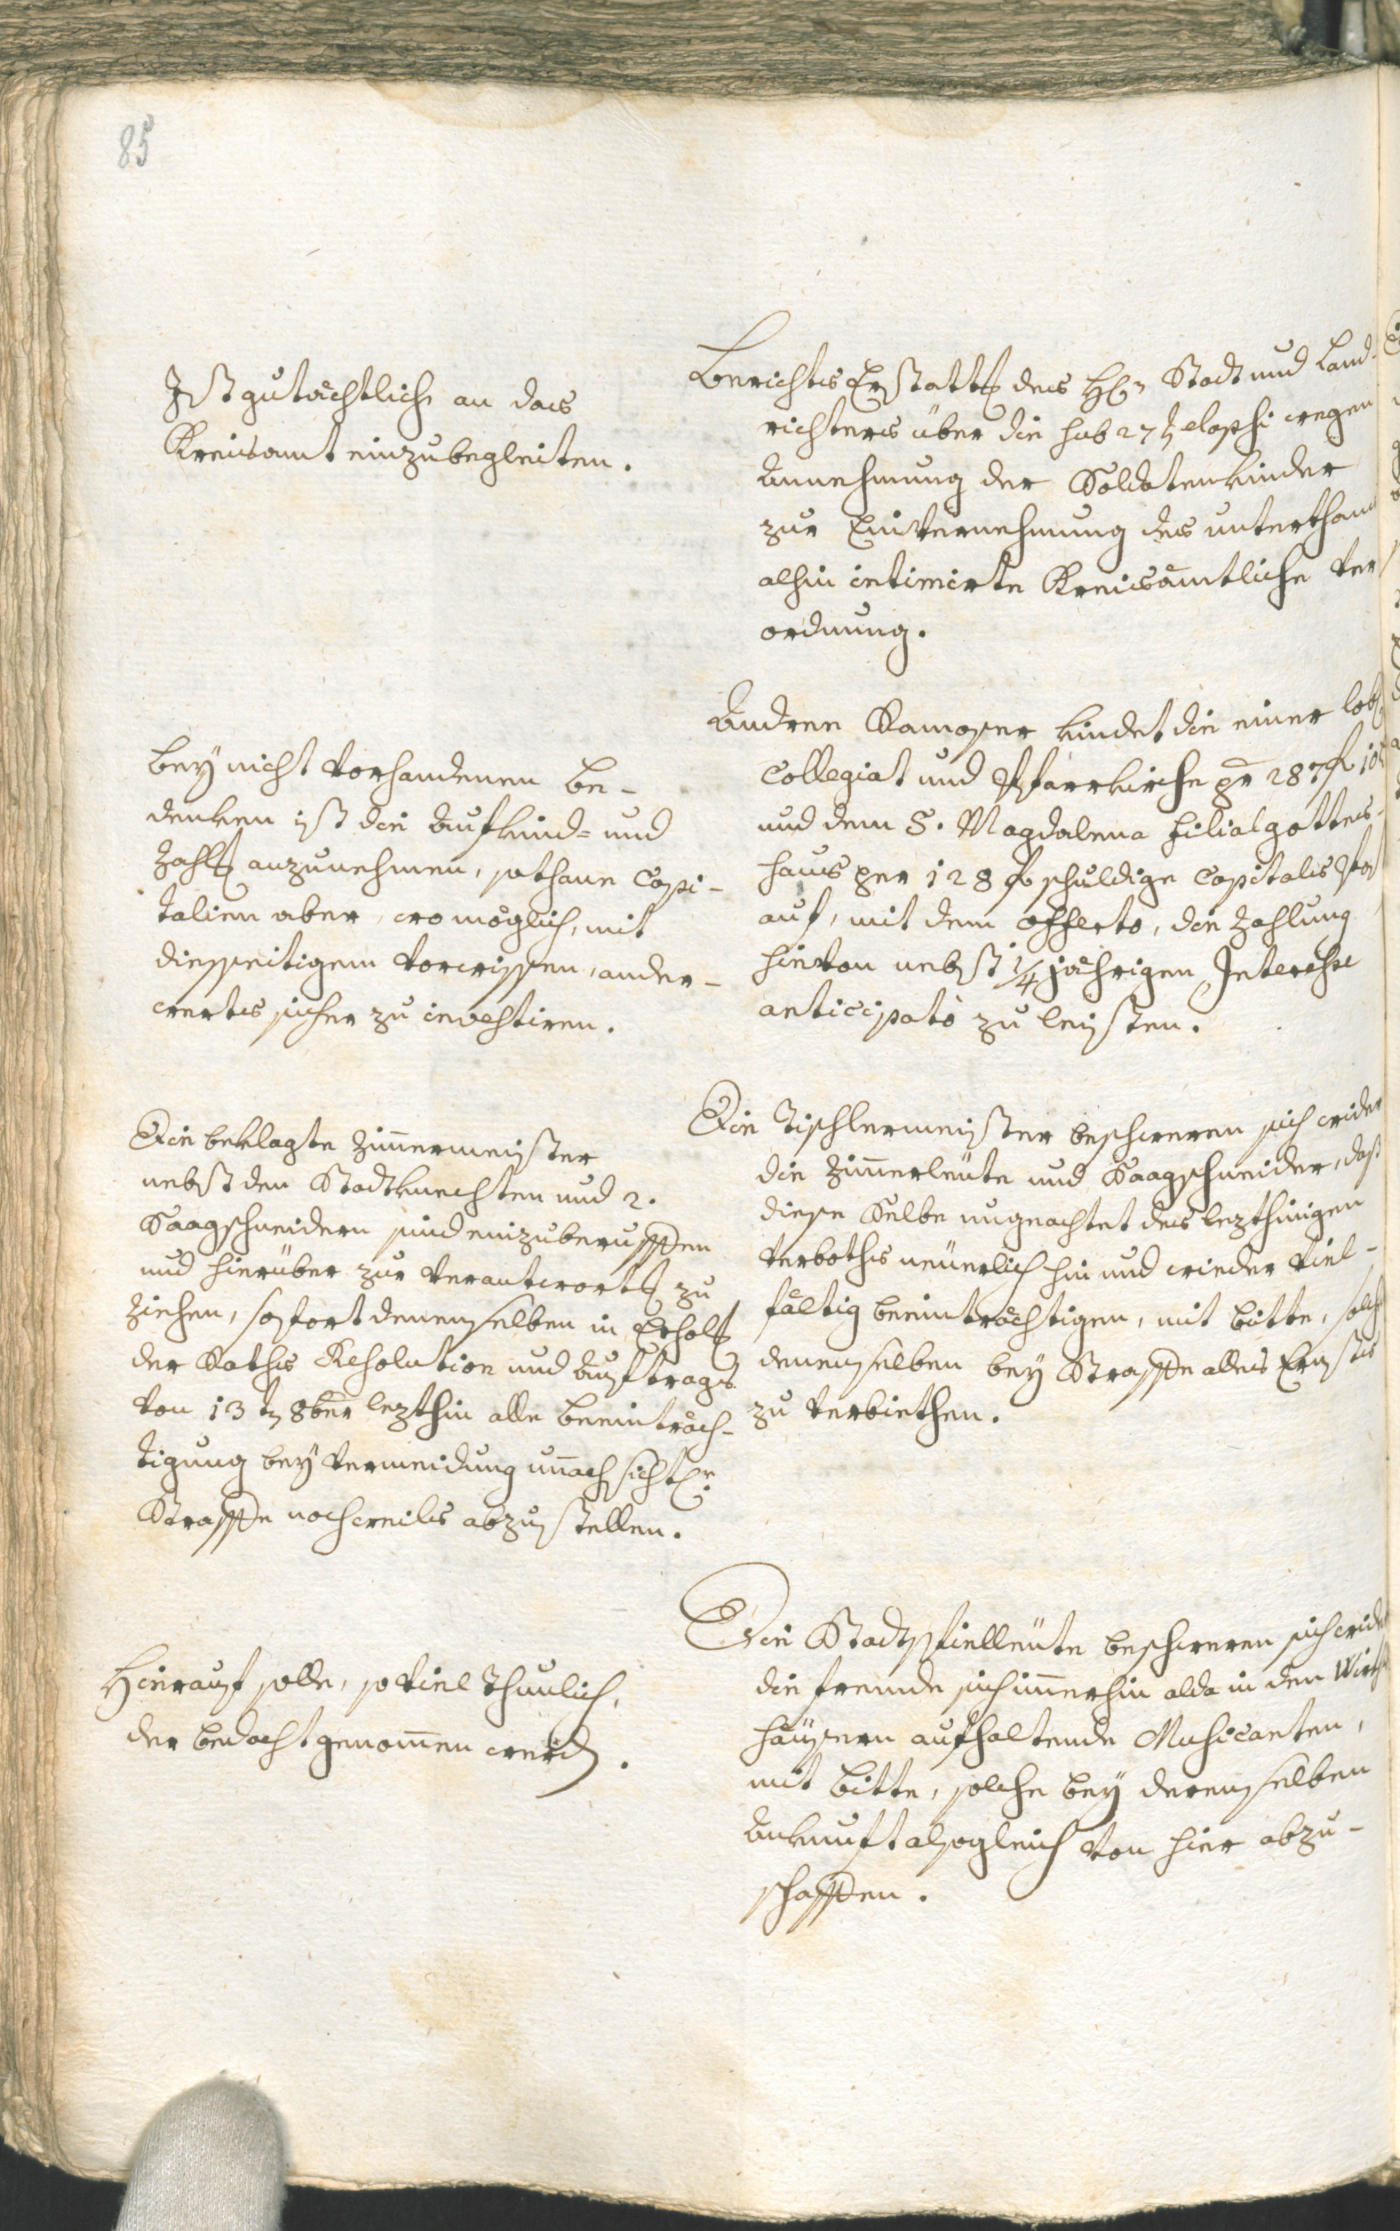 85
Ist gutächtlich an das
Kreisamt einzubegleiten.
Berichts Erstattg des Hrn Stadt und Land-
richters über die sub 27t elapsi wegen
Annehmung der Soldatenkinder
zur Einvernehmung des unterthans
alhin intimirte Kreisämtliche Ver
ordnung.
Bey nicht vorhandenen Be-
denken ist die Aufkind- und
Zahlg anzunehmen, sothane Capi-
talien aber, wo möglich, mit
diesseitigem Vorwissen, ander-
werts sicher zu investiren.
Andree Ramoser kündet die einer lobl
Collegiat und Pfarrkirche pr 287 f 10
und dem S. Magdalena filialgottes-
haus per 128 f schuldige Capitalis Post
auf, mit dem offerto, die Zahlung
hievon nebst 1/4 jährigen Interesse
anticipato zu leisten.
Die beklagte Zimmermeister
nebst den Stadtknechten und 2.
Saagschneidern sind einzuberuffen
und hierüber zur Verantwortg zu
ziehen, sofort denenselben in Erholg
der Raths Resolution und Auftrags
von 13t 8ber lezthin alle Beeinträch-
tigung bey Vermeidung unnachsichtlr
Straffe nochweils abzustellen.
Die Tischlermeister beschweren sich wider
die Zimmerleüte und Saagschneider, daß
diese Selbe ungeachtet des lezthinigen
Verboths neüerlich hin und wieder viel-
fältig beeinträchtigen, mit Bitte, solch
denenselben bey Straffe alles Ernstes
zu verbiethen.
Hierauf solle, so viel thunlich,
der Bedacht genommen werdn.
Die Stadtspielleüte beschweren sich wider
die fremde sich immerhin alda in den Wirths
häusern aufhaltende Musicanten,
mit Bitte, solche bey derenselben
Ankunft alsogleich von hier abzu-
schaffen.